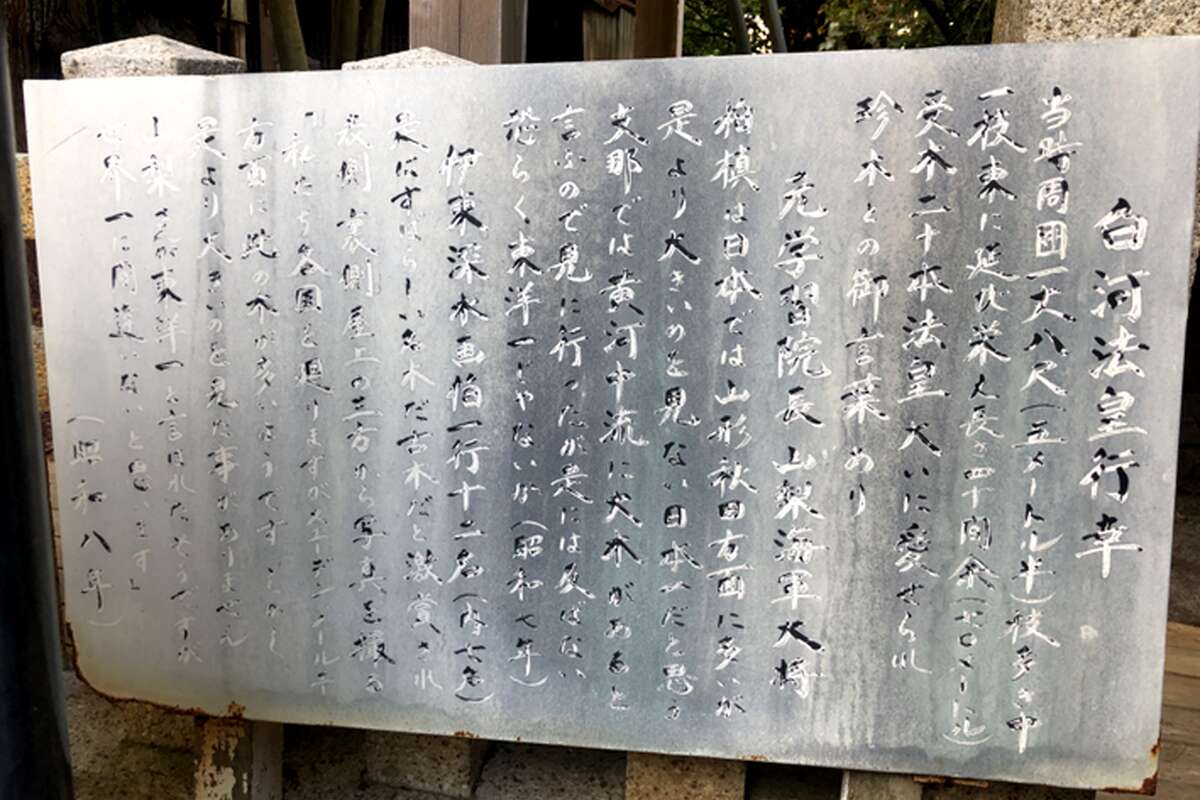 白河法皇行幸
当時周囲一丈八尺(五メートル半)枝多き中
一枝東に延び栄え長さ四十間余(七〇メートル)
受木二十本法皇大いに愛せられ
珍木との御言葉あり
元学習院長 山梨海軍大将
柏槙は日本では山形秋田方面に多いが
是より大きいのを見ない日本一だと思う
支那では黄河中流に大木があると
言ふので見に行ったが是には及ばない
恐らく東洋一じゃないか(昭和七年)
伊東深水画伯一行十二名(内七名)
是はすばらしい名木だ古木だと激賞され
表側 裏側 屋上の三方から写真を撮る
「私たち各国を廻りますがスエーデン ノールウエ
方面に此の木が多いようです しかし
是より大きいのを見た事がありません
山梨さんが東洋一と言はれたそうですが
世界一に間違いないと思います」
(昭和八年)